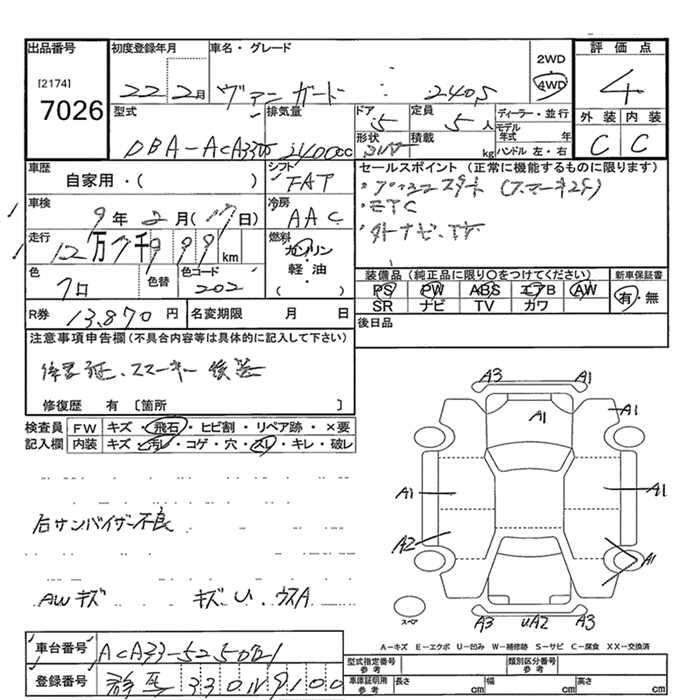 出品番号 初度登録年月 車名・グレード 評価点
[2174] 7026
22 2月 ヴァンガード 240S
2WD
4WD
4
型式 排気量 ドア 定員 ディーラー・並行 外装 内装
DBA-ACA33W 2400cc 5 5人 モデル年式 年 C C
形状 積載 kg ハンドル 左・右
車歴 シフト セールスポイント (正常に機能するものに限ります)
自家用・( ) FAT
車検 冷房 ・ETC
9年2月(17日) AAC ・外ナビ、TV
走行 燃料
12万7千 km ガソリン
軽・油
( )
色 色替 色コード 装備品 (純正品に限り○をつけてください) 新車保証書
クロ 202 PS PW ABS エアB AW 有・無
SR ナビ TV カワ
R券 13,870円 名変期限 月 日 後日品
注意事項申告欄(不具合内容等は具体的に記入して下さい)
スマーキー 後送
修復歴 有 [箇所 ]
検査員 FW キズ・飛石・ヒビ割・リペア跡・×要
記入欄 内装 キズ・汚レ・コゲ・穴・スレ・キレ・破レ
右サンバイザー不良
AWキズ キズ U ウスA
A3 A1
A1 A1
A1 A1
A2 A1
スペア
A3 UA2 A3
A-キズ E-エクボ U-凹み W-補修跡 S-サビ C-腐食 XX-交換済
車台番号 ACA33-52
登録番号
型式指定番号 参考 類別区分番号 参考
車庫証明用 参考 長さ cm 幅 cm 高さ cm